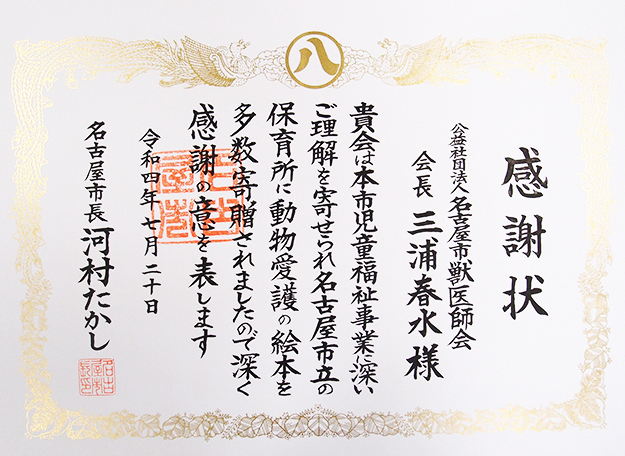 八
感謝状
公益社団法人名古屋市獣医師会
会長 三浦春水様
貴会は本市児童福祉事業に深い
ご理解を寄せられ名古屋市立の
保育所に動物愛護の絵本を
多数寄贈されましたので深く
感謝の意を表します
令和四年七月二十日
名古屋市長 河村たかし